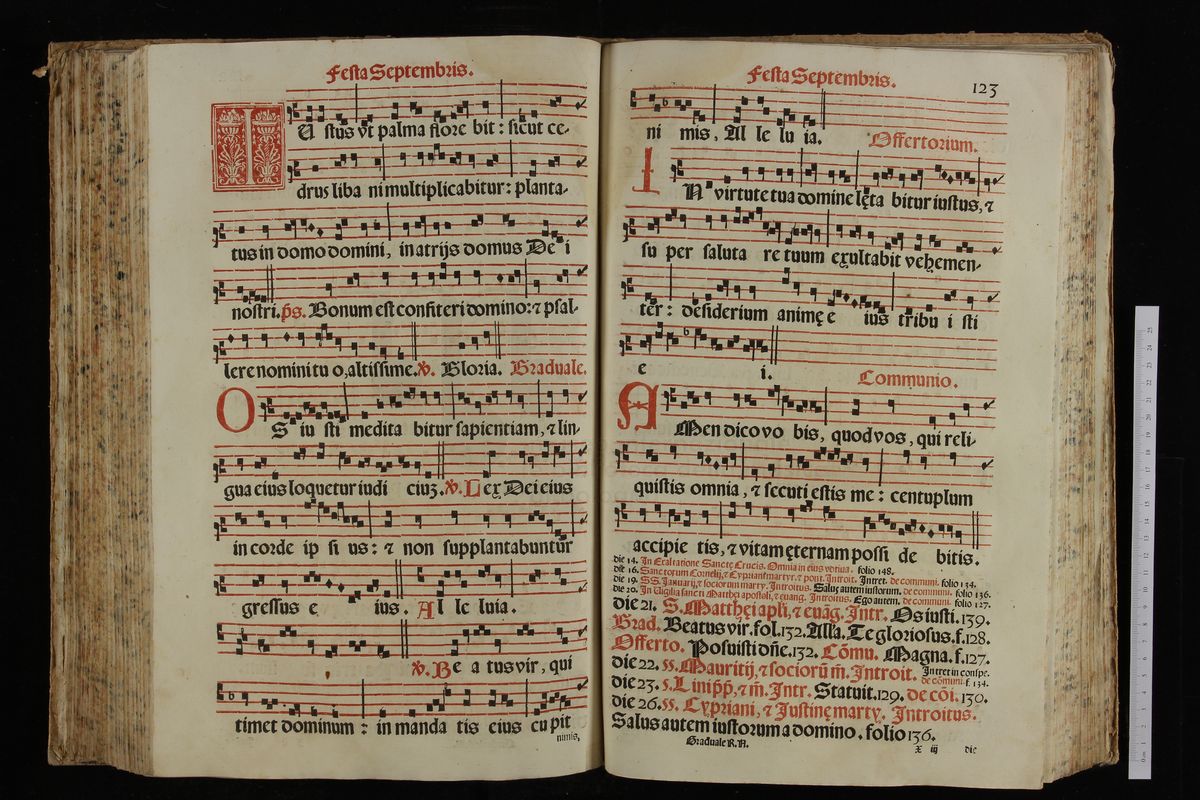 Festa Septembris.
IUstus vt palma flore bit : sicut ce-
drus liba ni multiplicabitur : planta-
tus in domo domini, in atrijs domus De i
nostri. ps. Bonum est confiteri domino: & psal-
lere nomini tu o, altissime. V. Gloria. Graduale.
OS iu sti medita bitur sapientiam, & lin-
gua eius loquetur iudi cium. V. Lex Dei eius
in corde ip si us : & non supplantabuntur
gressus e ius. Al le luia.
V. Be a tus vir, qui
timet dominum : in manda tis eius cu pit
nimis,
Festa Septembris.
123
ni mis, Al le lu ia.
Offertorium.
IN virtute tua domine lęta bitur iustus, &
su per saluta re tuum exultabit vehemen-
ter : desiderium animę e ius tribu i sti
e i.
Communio.
AMen dico vo bis, quod vos, qui reli-
quistis omnia, & secuti estis me : centuplum
accipie tis, & vitam ęternam possi de bitis.
die 14. In Exaltatione Sanctę Crucis. Omnia in eius votiua. folio 148.
die 16. Sanctorum Cornelij, & Cypriani martyr. & pont. Introit. Intret. de communi. folio 134.
die 19. SS. Januarij, & sociorum martyr. Introitus. Salus autem iustorum. de communi. folio 136.
die 20. In Vigilia sancti Matthei apostoli, & euang. Introitus. Ego autem. de communi. folio 127.
die 21. S. Matthęi apli, & euãg. Intr. Os iusti. 139.
Grad. Beatus vir. fol. 132. Alla. Te gloriosus. f. 128.
Offerto. Posuisti dñe. 132. Cõmu. Magna. f. 127.
die 22. SS. Mauritij, & sociorũ m̃. Introit. Intret in conspe.
de cõmuni. f. 134.
die 23. S. Lini pp̃, & m̃. Intr. Statuit. 129. de cõi. 130.
die 26. SS. Cypriani, & Justinę marty. Introitus.
Salus autem iustorum a domino. folio 136.
Graduale R.A.
x iij
die